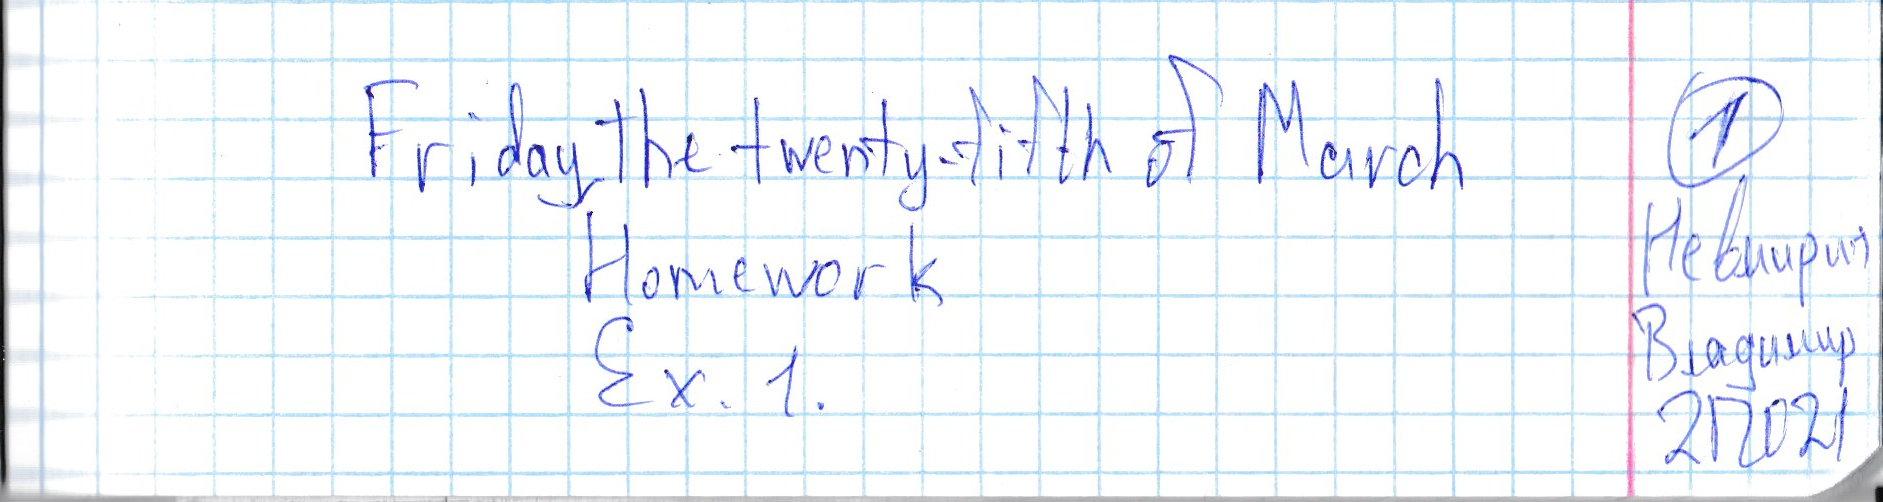 Friday, the twenty-fifth of March
Homework
Ex. 1.
1
Владимир
2П021